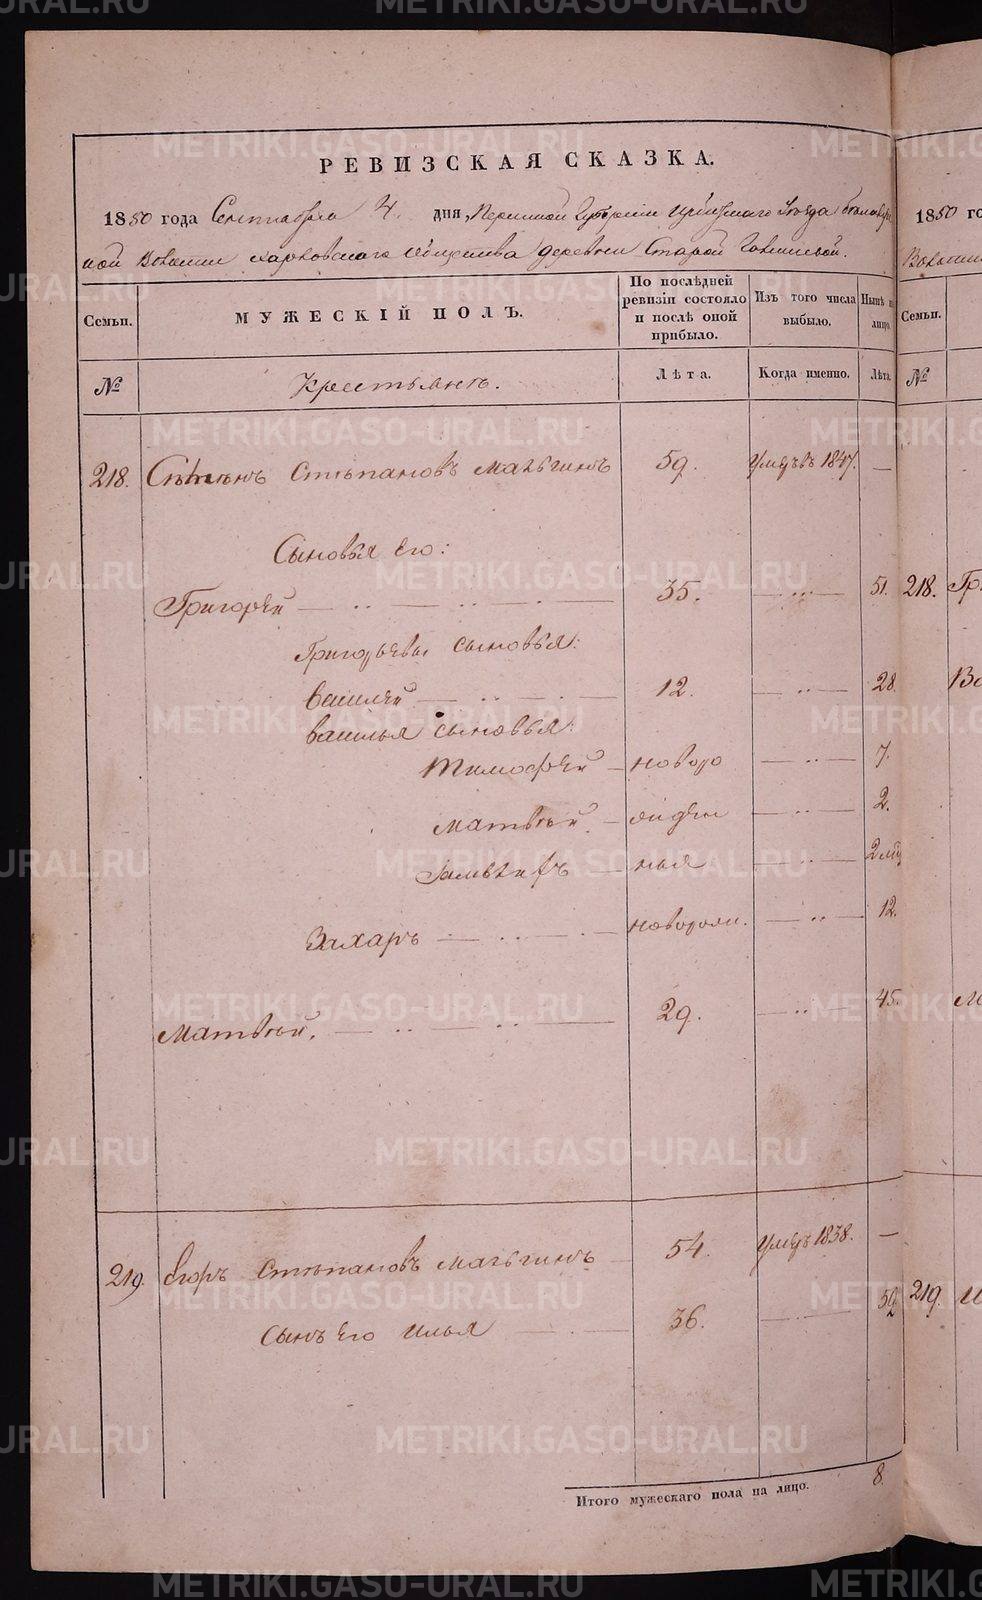 РЕВИЗСКАЯ СКАЗКА.
1850 года Сентября 4. дня, Пермской Губернии Ирбитского Уезда
ной Волости Харловского общества деревни Старой
Семьи.
МУЖЕСКІЙ ПОЛЪ.
По послѣдней ревизіи состояло и послѣ оной прибыло.
Изъ того числа выбыло.
Нынѣ на лицо.
№
Крестьянъ.
Лѣта.
Когда именно.
Лѣта.
218. Степановъ Малыгинъ 59. Умеръ въ 1847. —
Сыновья Его:
Григорей 35. 51.
Григорьевы сыновья:
Василей 12. 28.
Василья сыновья:
Тимофей новоро 7.
Матвей 2.
нья
Захаръ новорож. 12.
Матвей. 29. 45.
219. Егоръ Степановъ Малыгинъ 54. Умеръ 1838. —
сынъ Его Илья 36. 52
Итого мужескаго пола на лицо. 8.
1850 го
Семьи.
№
218. Гр
Ва
М
219. И
METRIKI.GASO-URAL.RU